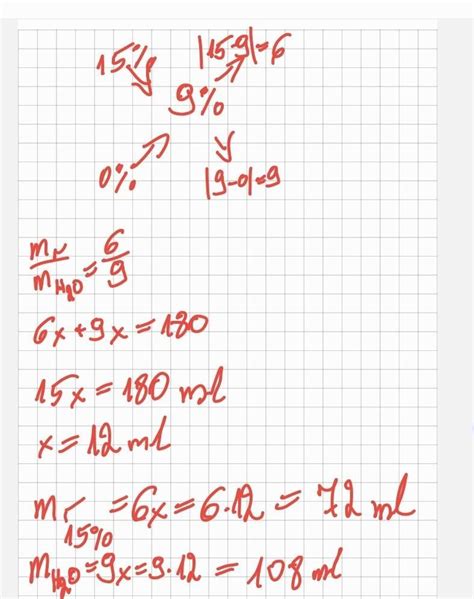 15% |15-9|=6
9%
0% |9-0|=9
mr/mH2O = 6/9
6x+9x=180
15x=180 ml
x=12 ml
mr 15% =6x=6·12=72 ml
mH2O=9x=9·12=108 ml